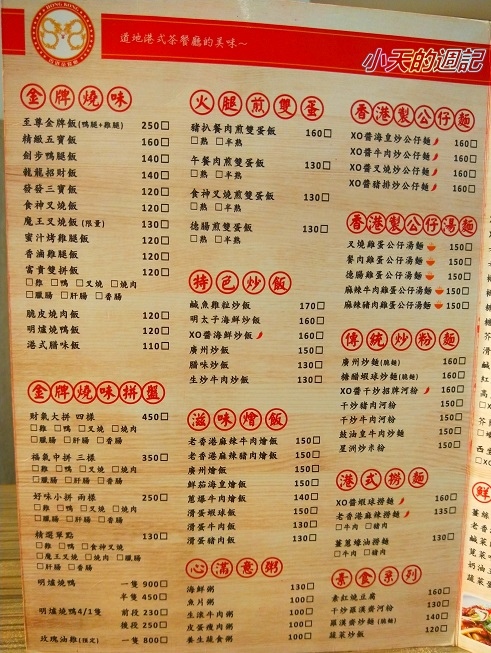 HONG KONG
道地港式茶餐廳的美味~
小天的週記
金牌燒味
至尊金牌飯(鴨腿+雞腿) 250□
精緻五寶飯 160□
劍步鴨腿飯 140□
龍龍招財飯 140□
發發三寶飯 120□
食神叉燒飯 120□
魔王叉燒飯(限量) 130□
蜜汁烤雞腿飯 120□
香滷雞腿飯 120□
富貴雙拼飯 120□
□雞 □鴨 □叉燒 □燒肉
□臘腸 □肝腸 □香腸
脆皮燒肉飯 120□
明爐燒鴨飯 120□
港式腊味飯 110□
金牌燒味拼盤
財氣大拼 四樣 450□
□雞 □鴨 □叉燒 □燒肉
□臘腸 □肝腸 □香腸
福氣中拼 三樣 350□
□雞 □鴨 □叉燒 □燒肉
□臘腸 □肝腸 □香腸
好味小拼 兩樣 250□
□雞 □鴨 □叉燒 □燒肉
□臘腸 □肝腸 □香腸
精選單點 130□
□雞 □鴨 □食神叉燒
□魔王叉燒 □燒肉 □臘腸
□肝腸 □香腸
明爐燒鴨 一隻 900□
半隻 450□
明爐燒鴨4/1隻 前段 230□
後段 250□
玫瑰油雞(預定) 一隻 800□
火腿煎雙蛋
豬扒餐肉煎雙蛋飯 160□
□熟 □半熟
午餐肉煎雙蛋飯 130□
□熟 □半熟
食神叉燒煎雙蛋飯 130□
□熟 □半熟
德腸煎雙蛋飯 130□
□熟 □半熟
特色炒飯
鹹魚雞粒炒飯 170□
明太子海鮮炒飯 160□
XO醬海鮮炒飯 160□
廣州炒飯 150□
腊味炒飯 130□
生炒牛肉炒飯 130□
滋味燴飯
老香港麻辣牛肉燴飯 150□
老香港麻辣豬肉燴飯 150□
廣州燴飯 150□
鮮茄海皇燴飯 150□
蔥爆牛肉燴飯 140□
滑蛋蝦球飯 150□
滑蛋牛肉飯 130□
滑蛋豬肉飯 130□
心滿意粥
海鮮粥 130□
魚片粥 100□
生滾牛肉粥 100□
皮蛋瘦肉粥 100□
養生蔬食粥 100□
香港製公仔麵
XO醬海皇炒公仔麵 160□
XO醬牛肉炒公仔麵 160□
XO醬叉燒炒公仔麵 160□
XO醬豬排炒公仔麵 160□
香港製公仔湯麵
叉燒雞蛋公仔湯麵 150□
餐肉雞蛋公仔湯麵 150□
德腸雞蛋公仔湯麵 150□
麻辣牛肉雞蛋公仔湯麵 150□
麻辣豬肉雞蛋公仔湯麵 150□
傳統炒粉麵
廣州炒麵(脆麵) 160□
糖醋蝦球炒麵(脆麵) 160□
XO醬干炒招牌河粉 160□
干炒豬肉河粉 150□
干炒牛肉河粉 150□
豉油皇牛肉炒麵 150□
星洲炒米粉 150□
港式撈麵
XO醬蝦球撈麵 150□
老香港麻辣撈麵 135□
□牛肉 □豬肉
薑蔥蠔油撈麵 130□
□牛肉 □豬肉
素食系列
素紅燒豆腐 160□
干炒羅漢齋河粉 130□
羅漢齋炒麵(脆麵) 140□
蔬菜炒飯 120□